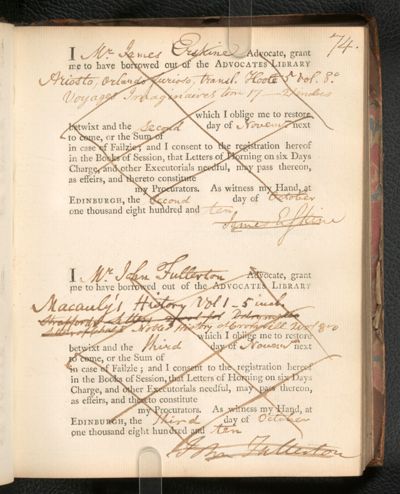 74.
I Mr. James Erskine Advocate, grant
me to have borrowed out of the ADVOCATES LIBRARY
Ariosto, Orlando furioso, transl. Hoole 5 vol. 8°
Voyages Imaginaires tom 17
which I oblige me to restore
betwixt and the Second day of Novemr next
to come, or the Sum of
in case of Failzie; and I consent to the registration hereof
in the Books of Session, that Letters of Horning on six Days
Charge, and other Executorials needful, may pass thereon,
as effeirs, and thereto constitute
my Procurators. As witness my Hand, at
EDINBURGH, the Second day of October
one thousand eight hundred and ten
James Erskine
I Mr. John Fullerton Advocate, grant
me to have borrowed out of the ADVOCATES LIBRARY
Macauly's History Vol 1-5 incl.
Strafford's Letters
Noble's Mem. of Cromwell 2 vol 8vo
which I oblige me to restore
betwixt and the third day of Novemr next
to come, or the Sum of
in case of Failzie; and I consent to the registration hereof
in the Books of Session, that Letters of Horning on six Days
Charge, and other Executorials needful, may pass thereon,
as effeirs, and thereto constitute
my Procurators. As witness my Hand, at
EDINBURGH, the third day of October
one thousand eight hundred and ten
John Fullerton